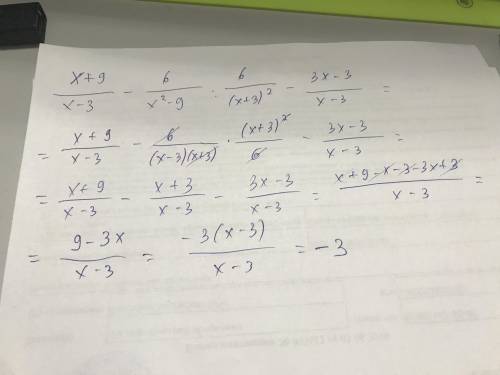 (x+9)/(x-3) - 6/(x²-9) : 6/(x+3)² - (3x-3)/(x-3) =
= (x+9)/(x-3) - 6/((x-3)(x+3)) · (x+3)²/6 - (3x-3)/(x-3) =
= (x+9)/(x-3) - (x+3)/(x-3) - (3x-3)/(x-3) = (x+9-x-3-3x+3)/(x-3) =
= (9-3x)/(x-3) = -3(x-3)/(x-3) = -3